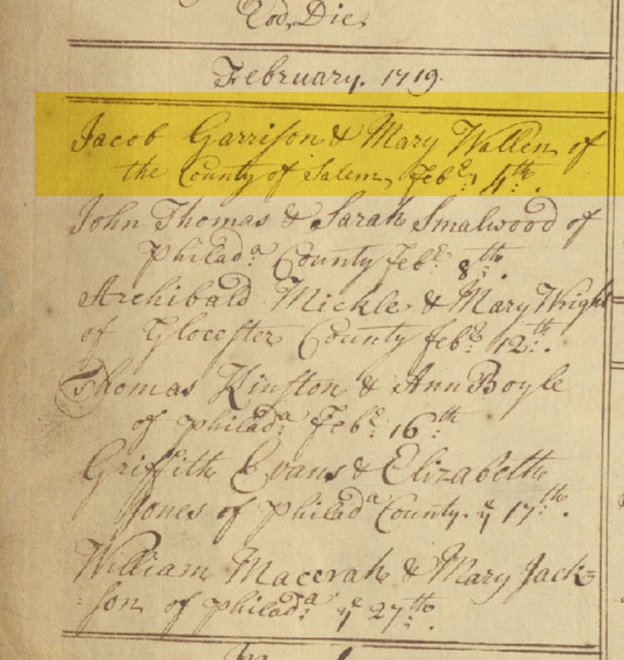 Eod. Die.
February. 1719.
Jacob Garrison & Mary Wallen of
the County of Salem, Feb.e 4.th.
John Thomas & Sarah Smalwood of
Philad.a County feb.e 8.th.
Archibald Mickle & Mary Wright
of Glocester County feb.e 12.th.
Thomas Kinston & Ann Boyle
of philad.a Feb.e 16.th
Griffith Evans & Elizabeth
Jones of Philad.a County. ye 17.th.
William Macerah & Mary Jack=
=son of philad.a ye 27.th.